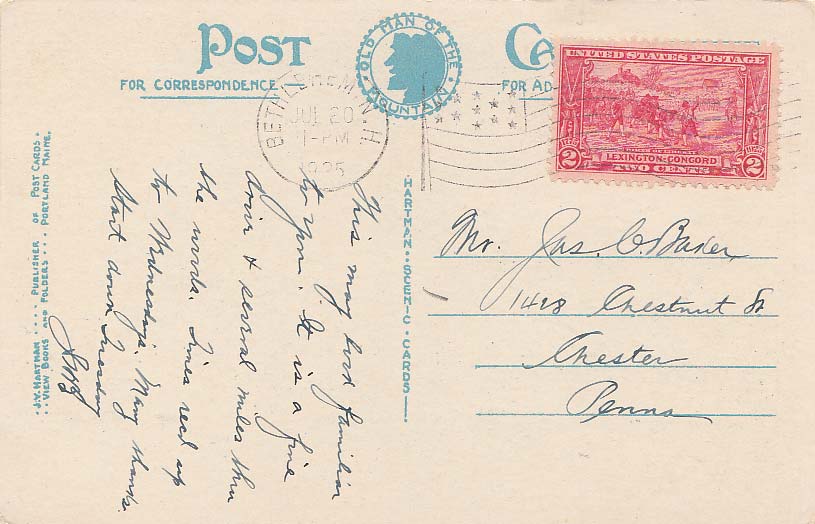 POST
FOR CORRESPONDENCE
OLD MAN OF THE MOUNTAIN
FOR AD
BETHLEHEM N.H.
JUL 20
1-PM
1925
UNITED STATES POSTAGE
LEXINGTON-CONCORD
2 TWO CENTS 2
This may look familiar
to you. It is a fine
drive & several miles thru
the woods. Times read up
to Wednesdays. Many thanks.
Start down Tuesday
Mr. Jas. C. Baker
1428 Chestnut St
Chester
Penna
HARTMAN-SCENIC-CARDS
J.V. HARTMAN .... PUBLISHER OF POST CARDS.
VIEW BOOKS AND FOLDERS... PORTLAND MAINE.